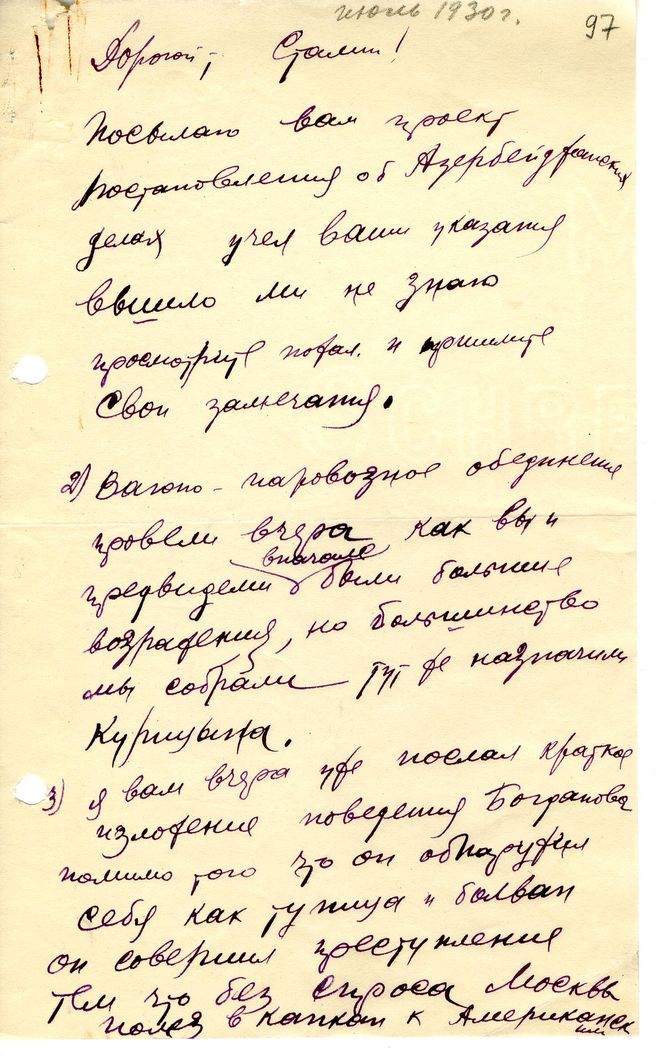 июль 1930 г.
97
Дорогой, Сталин!
Посылаю вам проект
постановления об Азербейджанских
делах учел ваши указания
вышло ли не знаю
просмотрите пожал. и пришлите
свои замечания.
2) Вагоно-паровозное обединение
провели вчера как вы и
вначале
предвидели были большие
возражения, но большинство
мы собрали тут же назначили
Курицына.
3) я вам вчера уже послал краткое
изложение поведения Богданова
помимо того что он обнаружил
себя как тупица и болван
он совершил преступление
тем что без спроса Москвы
полез в капкан к Американск
им